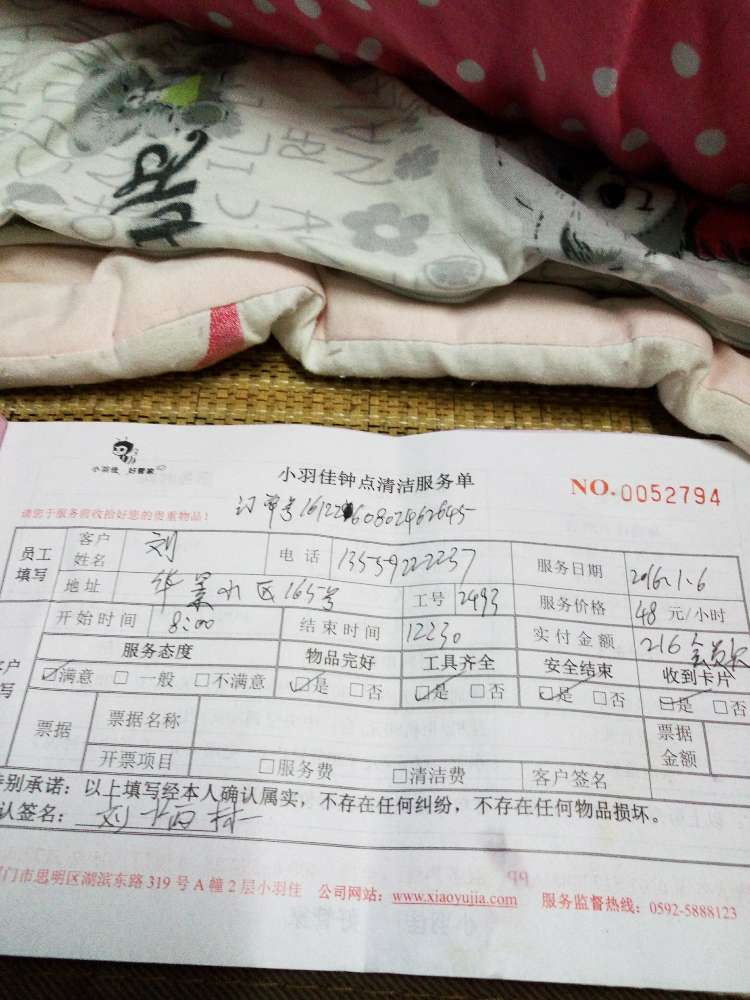 小羽佳 好管家
小羽佳钟点清洁服务单
NO.0052794
请您于服务前收拾好您的贵重物品!
员工填写 客户姓名 刘 电话 13559222237 服务日期 2016.1.6
地址 华景小区165号 工号 2493 服务价格 48 元/小时
开始时间 8:00 结束时间 12:30 实付金额 216 会员卡
服务态度 物品完好 工具齐全 安全结束 收到卡片
满意 □一般 □不满意 是 □否 是 □否 是 □否 是 □否
票据 票据名称 票据金额
开票项目 □服务费 □清洁费 客户签名
别承诺:以上填写经本人确认属实,不存在任何纠纷,不存在任何物品损坏。
认签名: 刘
门市思明区湖滨东路 319 号 A 幢 2 层小羽佳 公司网站:www.xiaoyujia.com 服务监督热线:0592-5888123